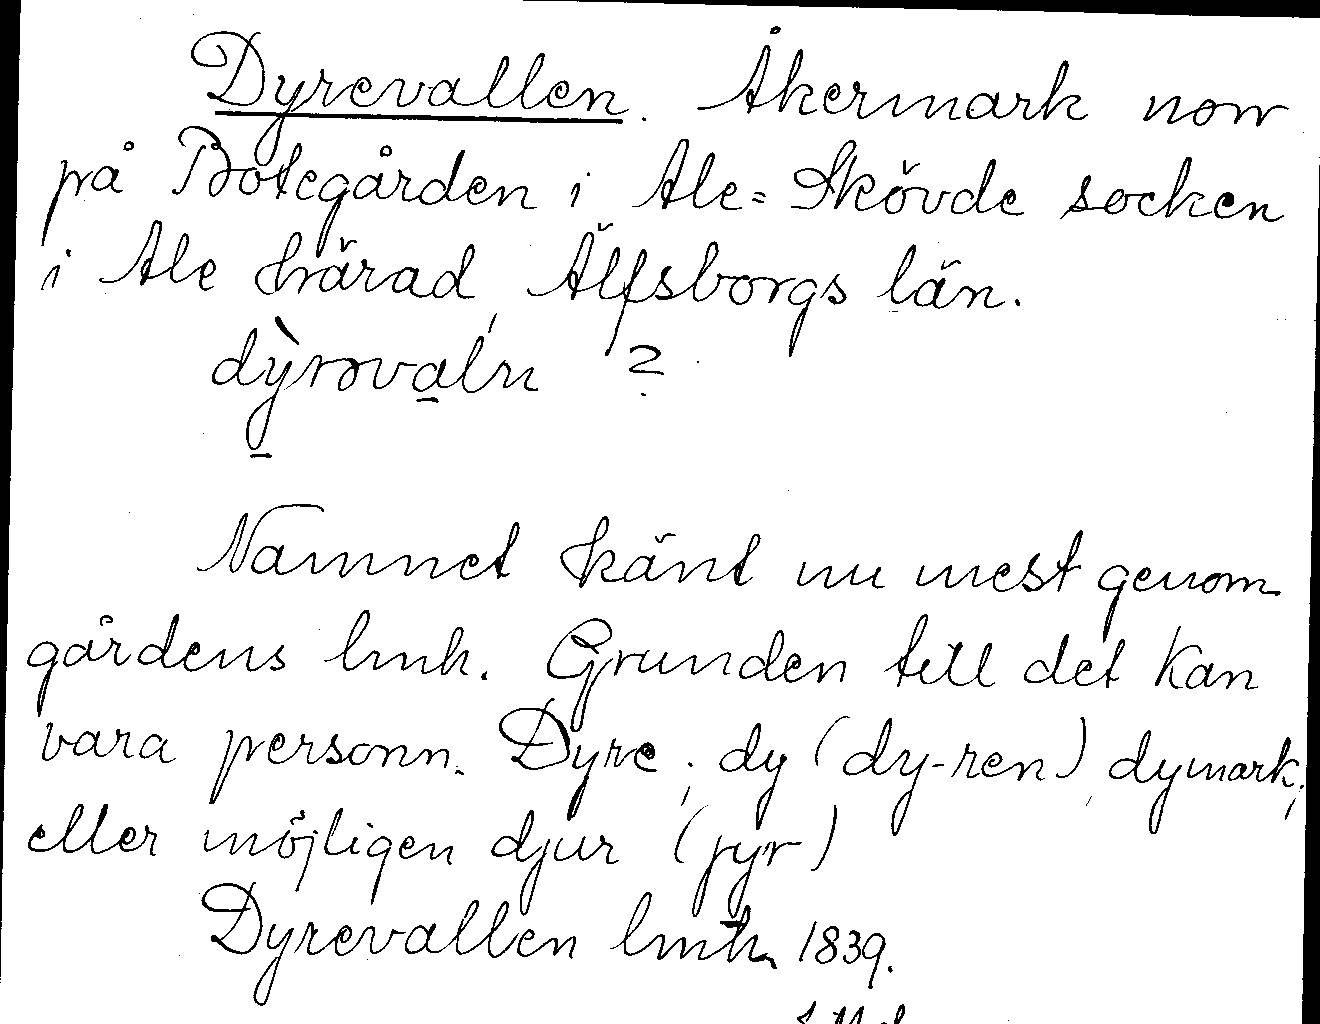 Dyrevallen. Åkermark norr
på Botegården i Ale=Skövde socken
i Ale härad, Älfsborgs län.
dỳ̠rova̠ln ?
Namnet känt nu mest genom
gårdens lmk. Grunden till det kan
vara personn. Dyre; dy (dy-ren), dymark;
eller möjligen djur (jyr)
Dyrevallen lmk 1839.